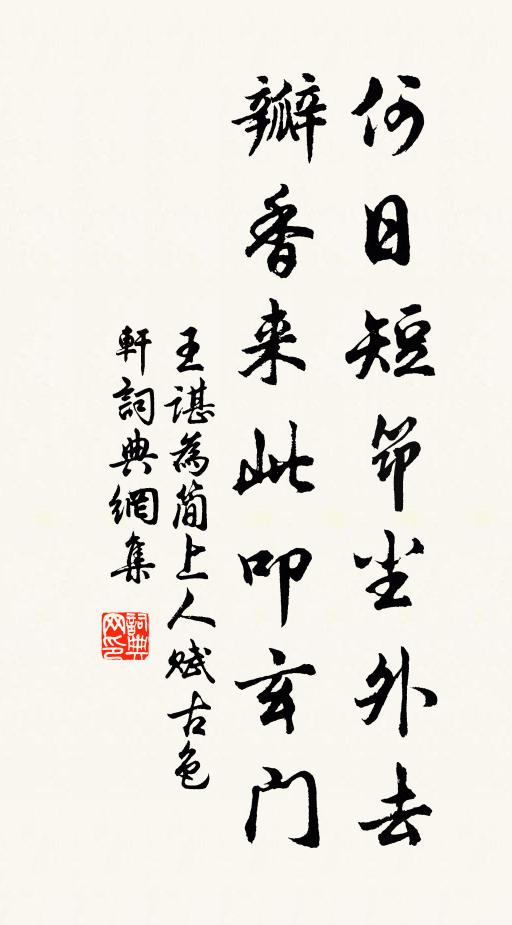 何日短筇尘外去
瓣香来此叩玄門
王諶為简上人赋古色
軒詞典網集
詞典网印